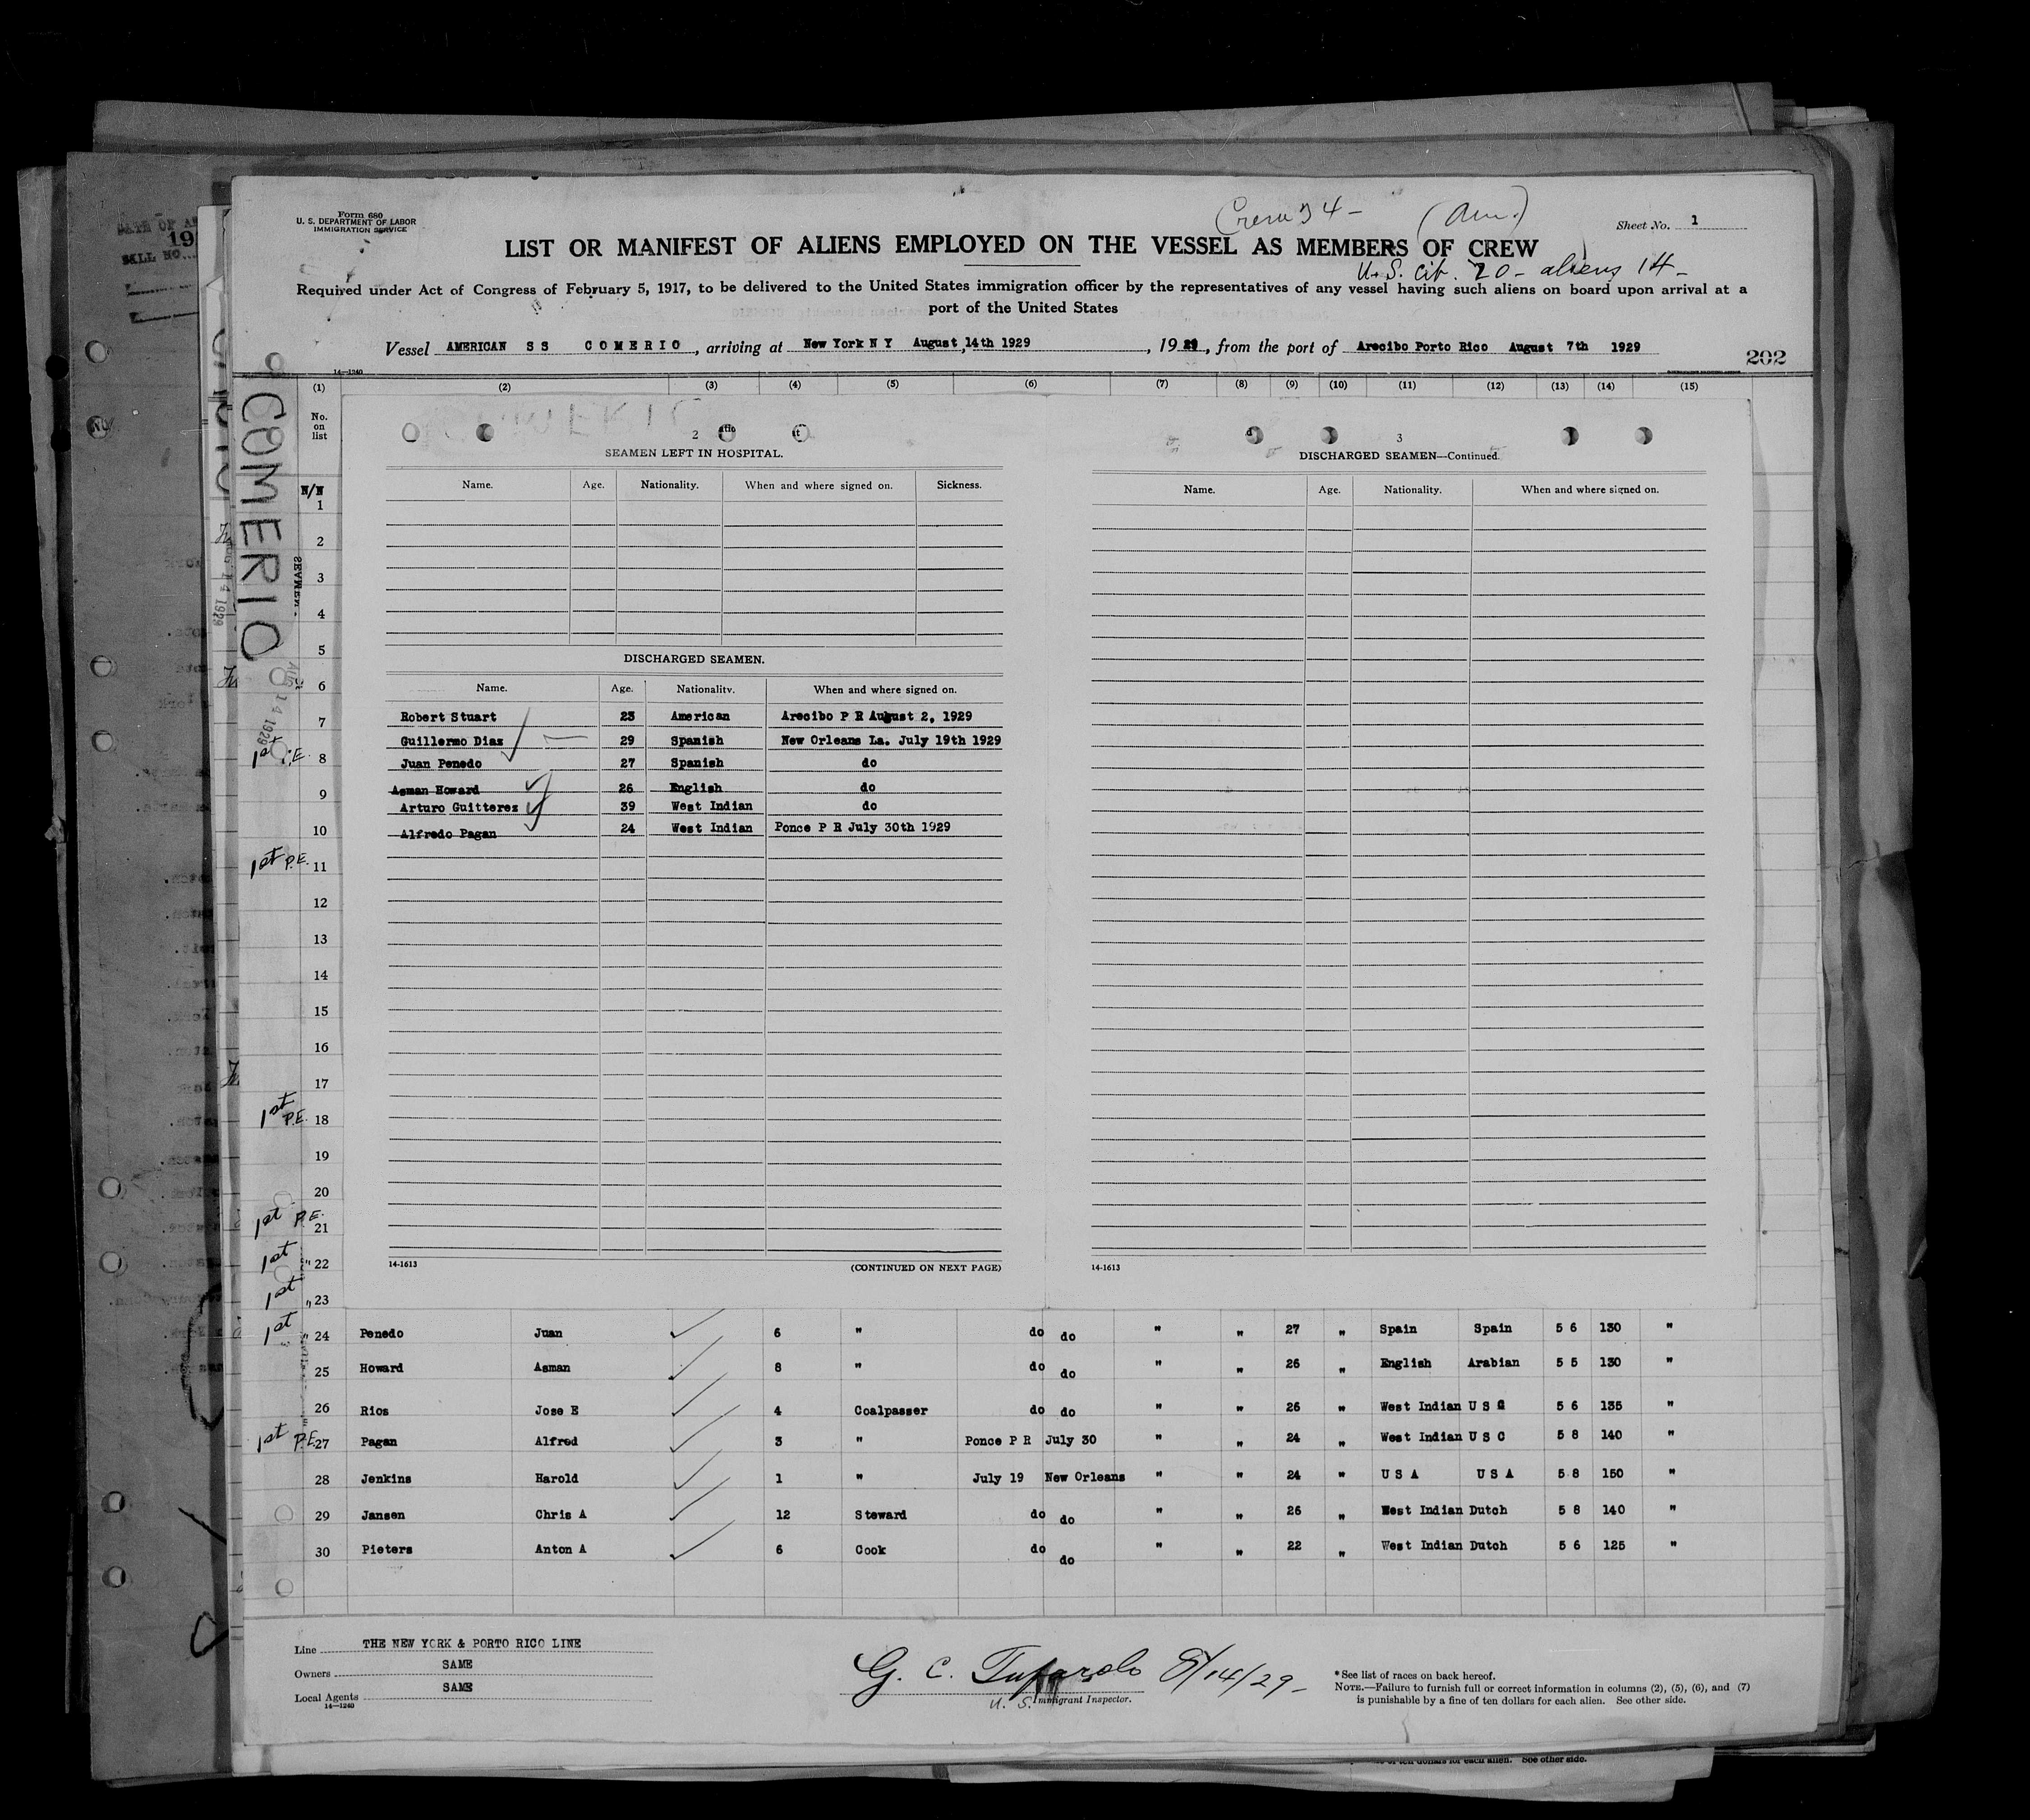 Form 680
U. S. DEPARTMENT OF LABOR
IMMIGRATION SERVICE
Crew 34 - (Am.)
Sheet No. 1
LIST OR MANIFEST OF ALIENS EMPLOYED ON THE VESSEL AS MEMBERS OF CREW
U.S. cit. 20 - aliens 14 -
Required under Act of Congress of February 5, 1917, to be delivered to the United States immigration officer by the representatives of any vessel having such aliens on board upon arrival at a
port of the United States
Vessel AMERICAN S S COMERIO, arriving at New York N Y August, 14th 1929, 1929, from the port of Arecibo Porto Rico August 7th 1929
202
14-1240
(1) (2) (3) (4) (5) (6) (7) (8) (9) (10) (11) (12) (13) (14) (15)
No. on list
COMERIO
SEAMEN
AUG 14 1929
N/N
1
2
3
4
5
6
7
1st P.E. 8
9
10
1st P.E. 11
12
13
14
15
16
17
1st P.E. 18
19
20
1st P.E. 21
1st " 22
1st " 23
2
SEAMEN LEFT IN HOSPITAL.
Name. Age. Nationality. When and where signed on. Sickness.
DISCHARGED SEAMEN.
Name. Age. Nationality. When and where signed on.
Robert Stuart 23 American Arecibo P R August 2, 1929
Guillermo Diaz 29 Spanish New Orleans La. July 19th 1929
Juan Penedo 27 Spanish do
Asman Howard 26 English do
Arturo Guitterez 39 West Indian do
Alfredo Pagan 24 West Indian Ponce P R July 30th 1929
14-1613 (CONTINUED ON NEXT PAGE)
3
DISCHARGED SEAMEN—Continued.
Name. Age. Nationality. When and where signed on.
14-1613
1st " 24 Penedo Juan 6 " do do " " 27 " Spain Spain 5 6 130 "
25 Howard Asman 8 " do do " " 26 " English Arabian 5 5 130 "
26 Rios Jose E 4 Coalpasser do do " " 26 " West Indian U S C 5 6 135 "
1st P.E. 27 Pagan Alfred 3 " Ponce P R July 30 " " 24 " West Indian U S C 5 8 140 "
28 Jenkins Harold 1 " July 19 New Orleans " " 24 " U S A U S A 5 8 150 "
29 Jansen Chris A 12 Steward do do " " 26 " West Indian Dutch 5 8 140 "
30 Pieters Anton A 6 Cook do do " " 22 " West Indian Dutch 5 6 125 "
Line THE NEW YORK & PORTO RICO LINE
Owners SAME
Local Agents SAME
14-1240
G. C. Tufarolo 8/14/29-
U. S. Immigrant Inspector.
* See list of races on back hereof.
NOTE.—Failure to furnish full or correct information in columns (2), (5), (6), and (7)
is punishable by a fine of ten dollars for each alien. See other side.
of ten dollars for each alien. See other side.